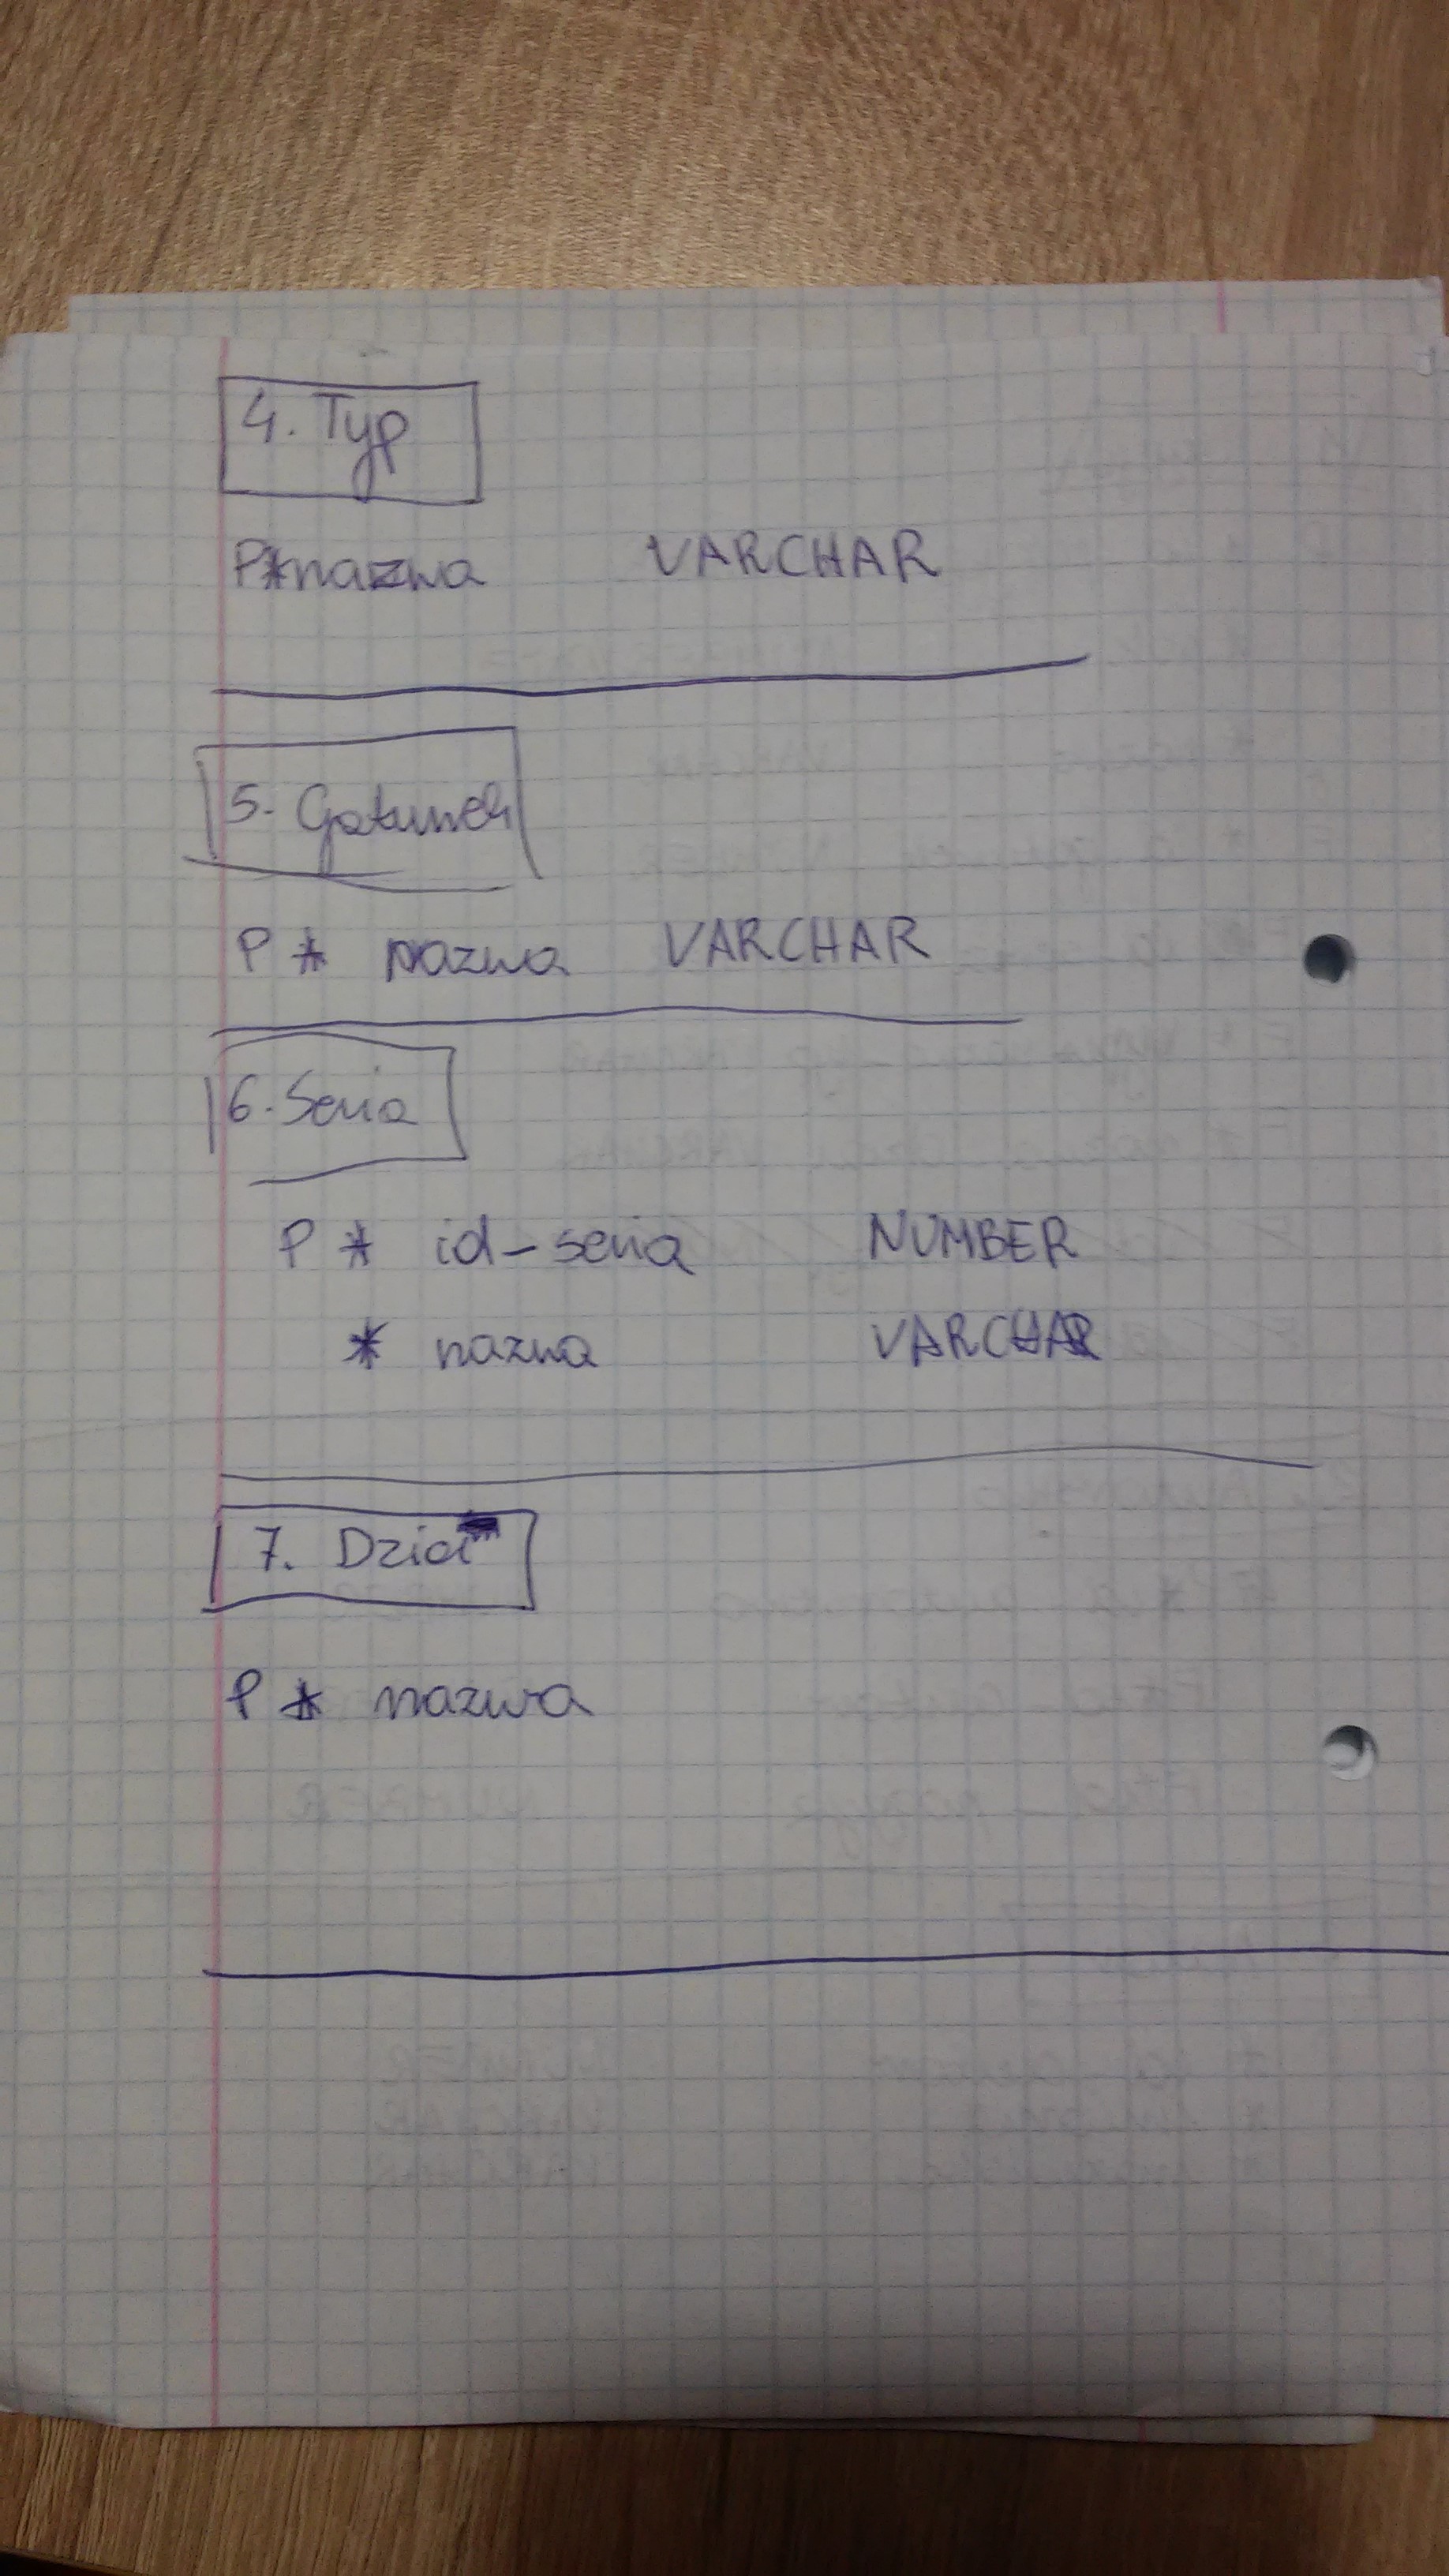 4. Typ
P * nazwa VARCHAR
5. Gatunek
P * nazwa VARCHAR
6. Seria
P * id_seria NUMBER
* nazwa VARCHAR
7. Dział
P * nazwa